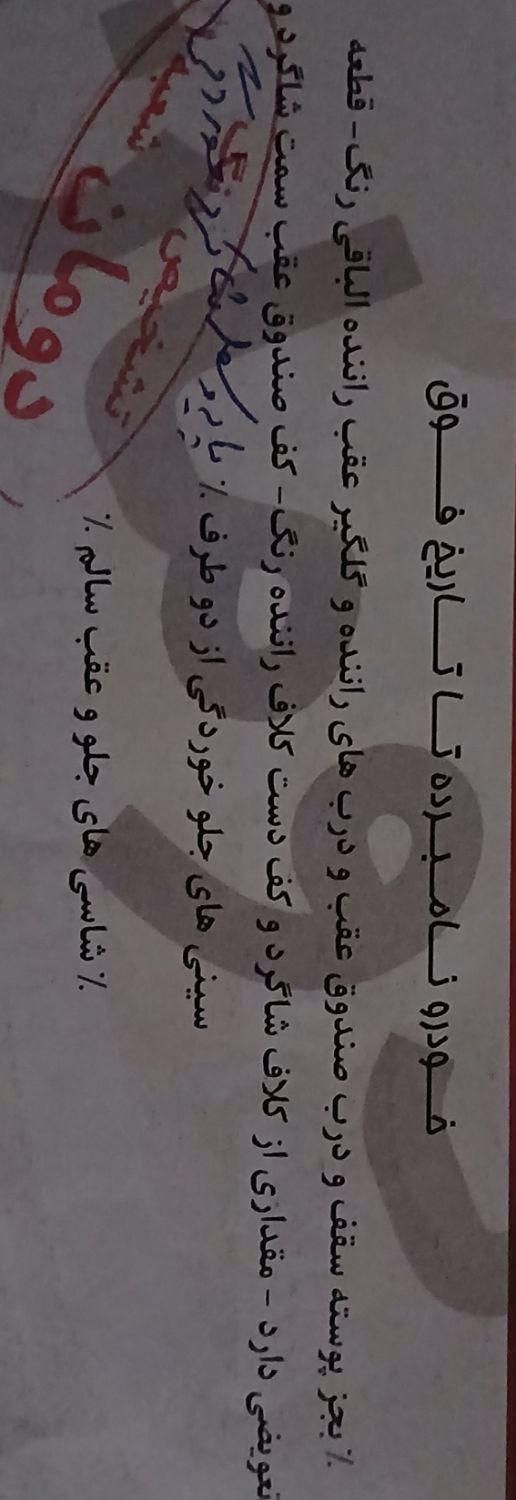 خودرو نامبرده تا تاریخ فوق
٪ بجز پوسته سقف و درب صندوق عقب و درب های راننده و گلگیر عقب راننده الباقی رنگ - قطعه
تعویضی دارد - مقداری از کلاف شاگرد و کف دست کلاف راننده رنگ - کف صندوق عقب سمت شاگرد و
سینی های جلو خوردگی از دو طرف ٪
٪ شاسی های جلو و عقب سالم ٪
تشخیص
شعبه
دومان